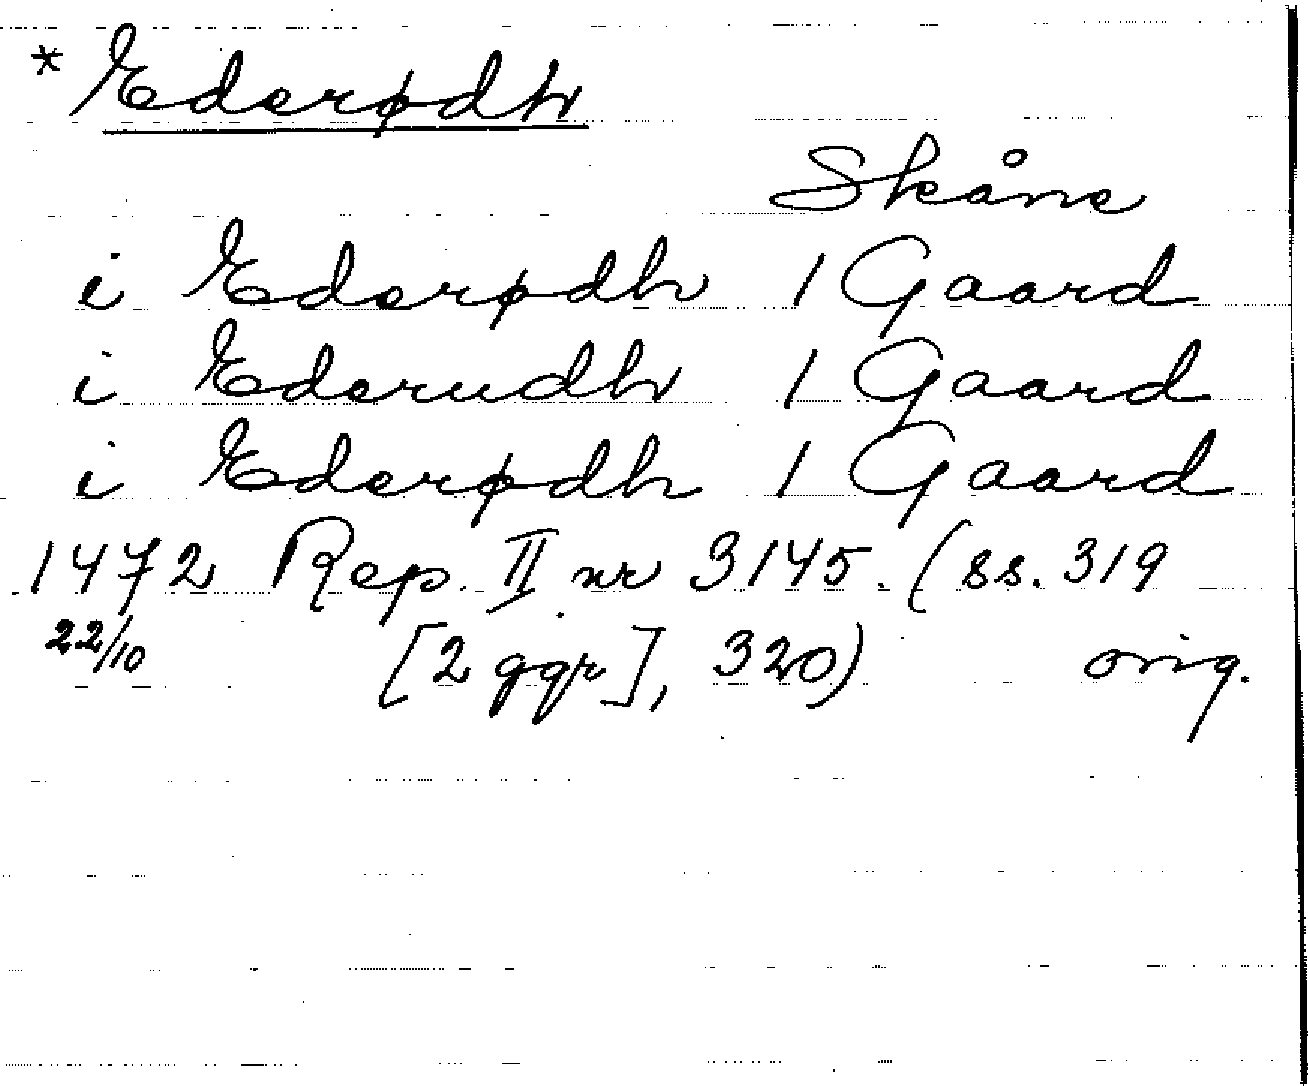 * Ederødh
Skåne
i Ederødh 1 Gaard
i Ederudh 1 Gaard
i Ederødh 1 Gaard
1472 Rep. II nr 3145. (ss. 319
22/10 [2 ggr], 320) orig.